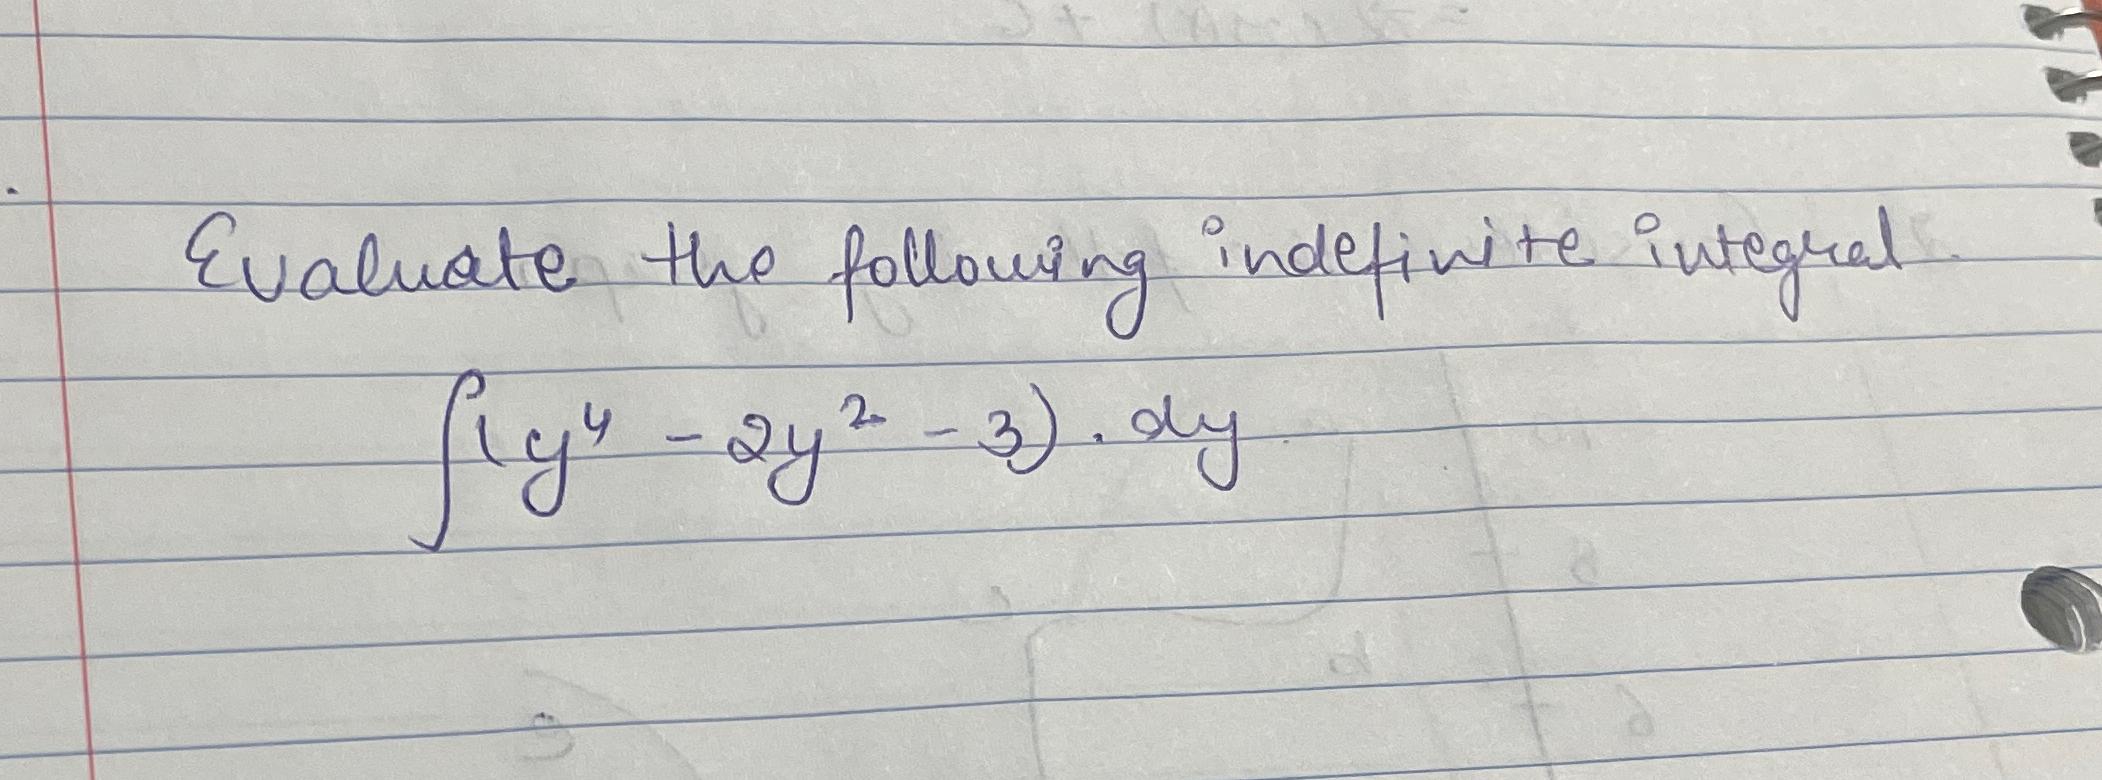 Evaluate the following indefinite integral.
∫(y⁴ - 2y² - 3). dy